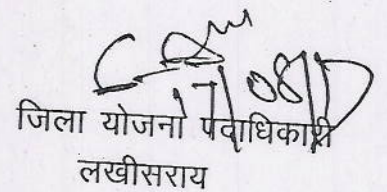 17/08/12
जिला योजना पदाधिकारी
लखीसराय